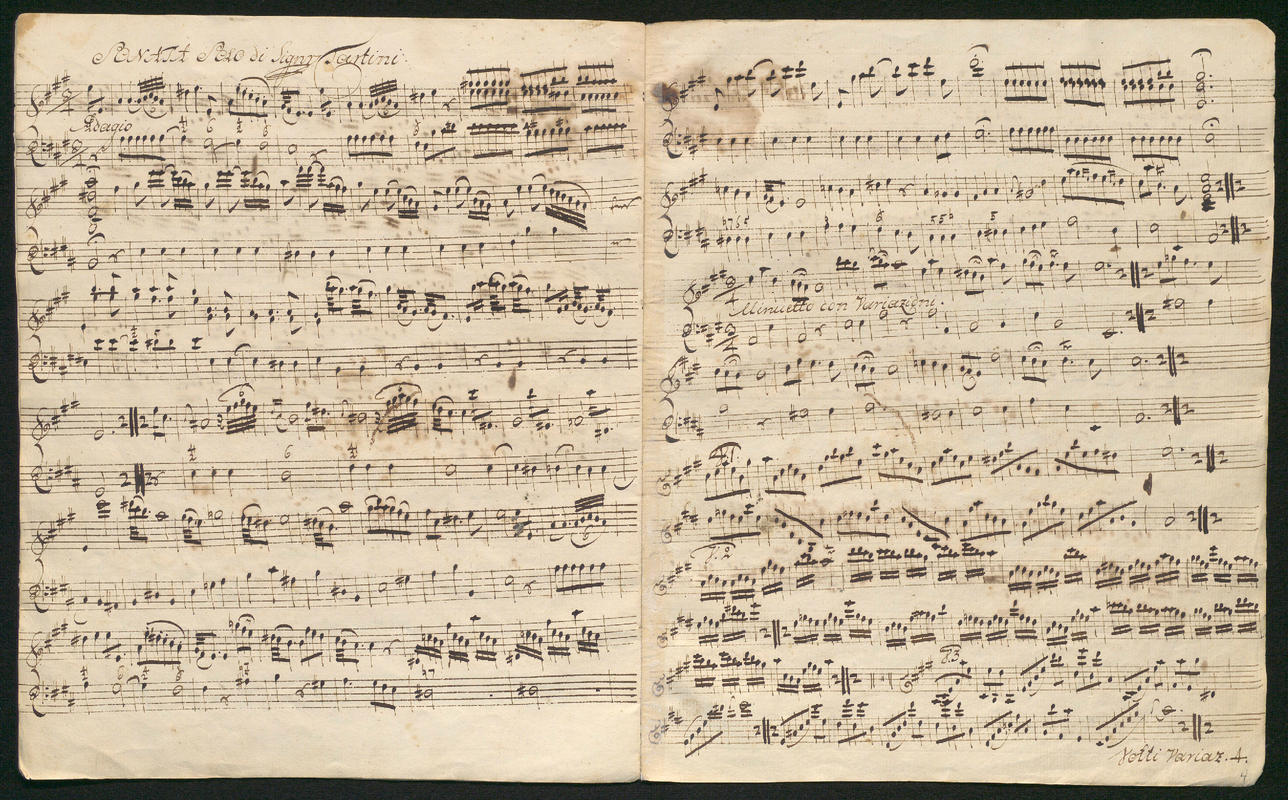 SONATA SOLO di Signr Tartini.
Adagio
6
6
6
6
6
♮7
♮765
6
5
Minuetto con Variazioni.
V.1
V.2
V.3
Volti Variaz. 4.
4